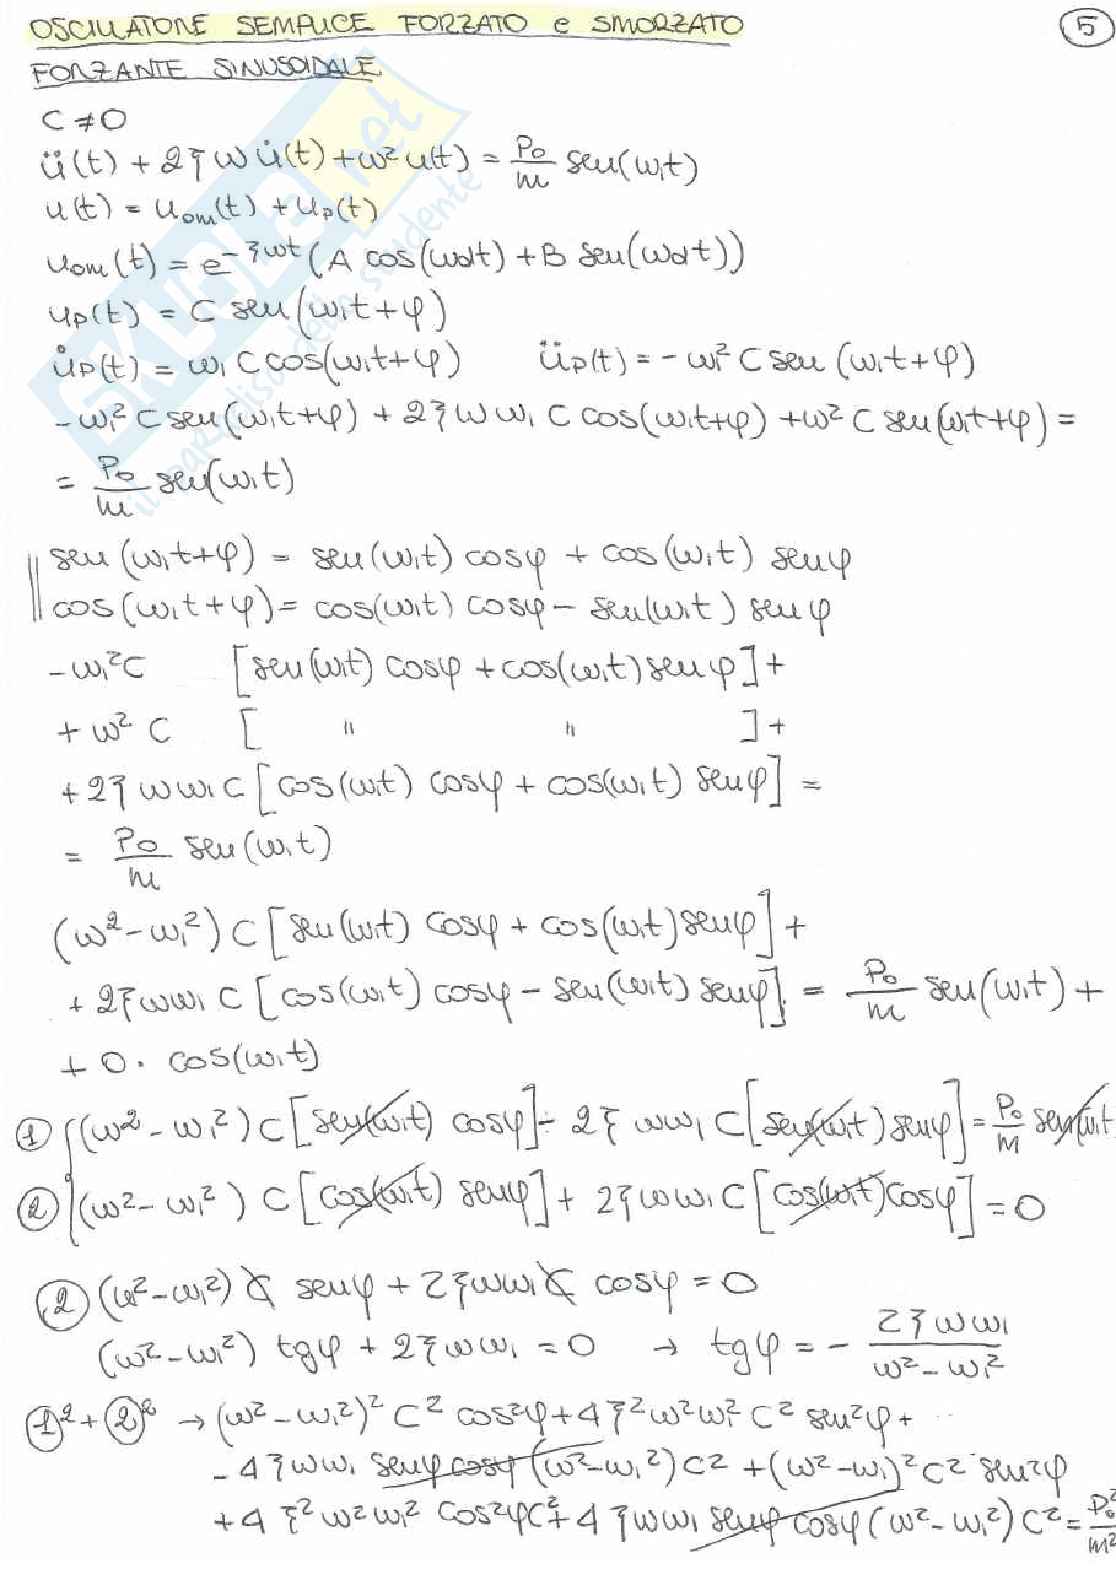 OSCILLATORE SEMPLICE FORZATO e SMORZATO
5
FORZANTE SINUSOIDALE
C ≠ 0
ü(t) + 2ξωu̇(t) + ω²u(t) = P₀/m sen(ω₁t)
u(t) = uom(t) + uP(t)
uom(t) = e^(-ξωt) (A cos(ωdt) + B sen(ωdt))
uP(t) = C sen(ω₁t+φ)
u̇P(t) = ω₁ C cos(ω₁t+φ) üP(t) = -ω₁² C sen (ω₁t+φ)
-ω₁² C sen(ω₁t+φ) + 2ξωω₁ C cos(ω₁t+φ) + ω² C sen(ω₁t+φ) =
= P₀/m sen(ω₁t)
sen (ω₁t+φ) = sen(ω₁t) cosφ + cos(ω₁t) senφ
cos(ω₁t+φ) = cos(ω₁t) cosφ - sen(ω₁t) senφ
-ω₁²C [sen(ω₁t) cosφ + cos(ω₁t) senφ] +
+ ω² C [ " " ] +
+ 2ξωω₁C [cos(ω₁t) cosφ + cos(ω₁t) senφ] =
= P₀/m sen(ω₁t)
(ω² - ω₁²) C [sen(ω₁t) cosφ + cos(ω₁t) senφ] +
+ 2ξωω₁ C [cos(ω₁t) cosφ - sen(ω₁t) senφ] = P₀/m sen(ω₁t) +
+ 0 · cos(ω₁t)
① (ω² - ω₁²) C [sen(ω₁t) cosφ] - 2ξωω₁ C [sen(ω₁t) senφ] = P₀/m sen(ω₁t
② (ω² - ω₁²) C [cos(ω₁t) senφ] + 2ξωω₁ C [cos(ω₁t) cosφ] = 0
② (ω² - ω₁²) C senφ + 2ξωω₁ C cosφ = 0
(ω² - ω₁²) tgφ + 2ξωω₁ = 0 → tgφ = - 2ξωω₁/ω² - ω₁²
①² + ②² → (ω² - ω₁²)² C² cos²φ + 4ξ²ω²ω₁² C² sen²φ +
- 4ξωω₁ senφ cosφ (ω² - ω₁²) C² + (ω² - ω₁)² C² sen²φ
+ 4ξ²ω²ω₁² cos²φ C² + 4ξωω₁ senφ cosφ (ω² - ω₁²) C² = P₀²/m²
SKUOLA.net
il paradiso dello studente